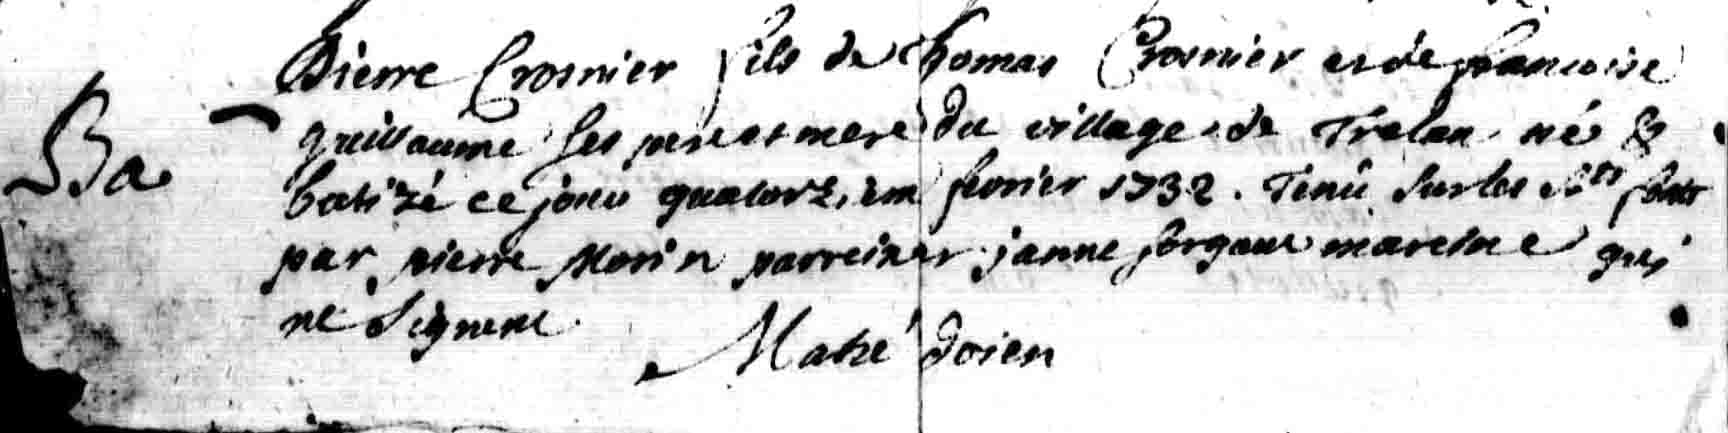 Pierre Crosnier fils de Thomas Crosnier et de francoise
Ba guillaume ses pere et mere du village de Trelan né &
batizé ce jour quatorziem fevrier 1732. Tenû sur les Sts fonts
par pierre Morin parrein et janne forgaut mareine qui
ne signent
Mahé doien